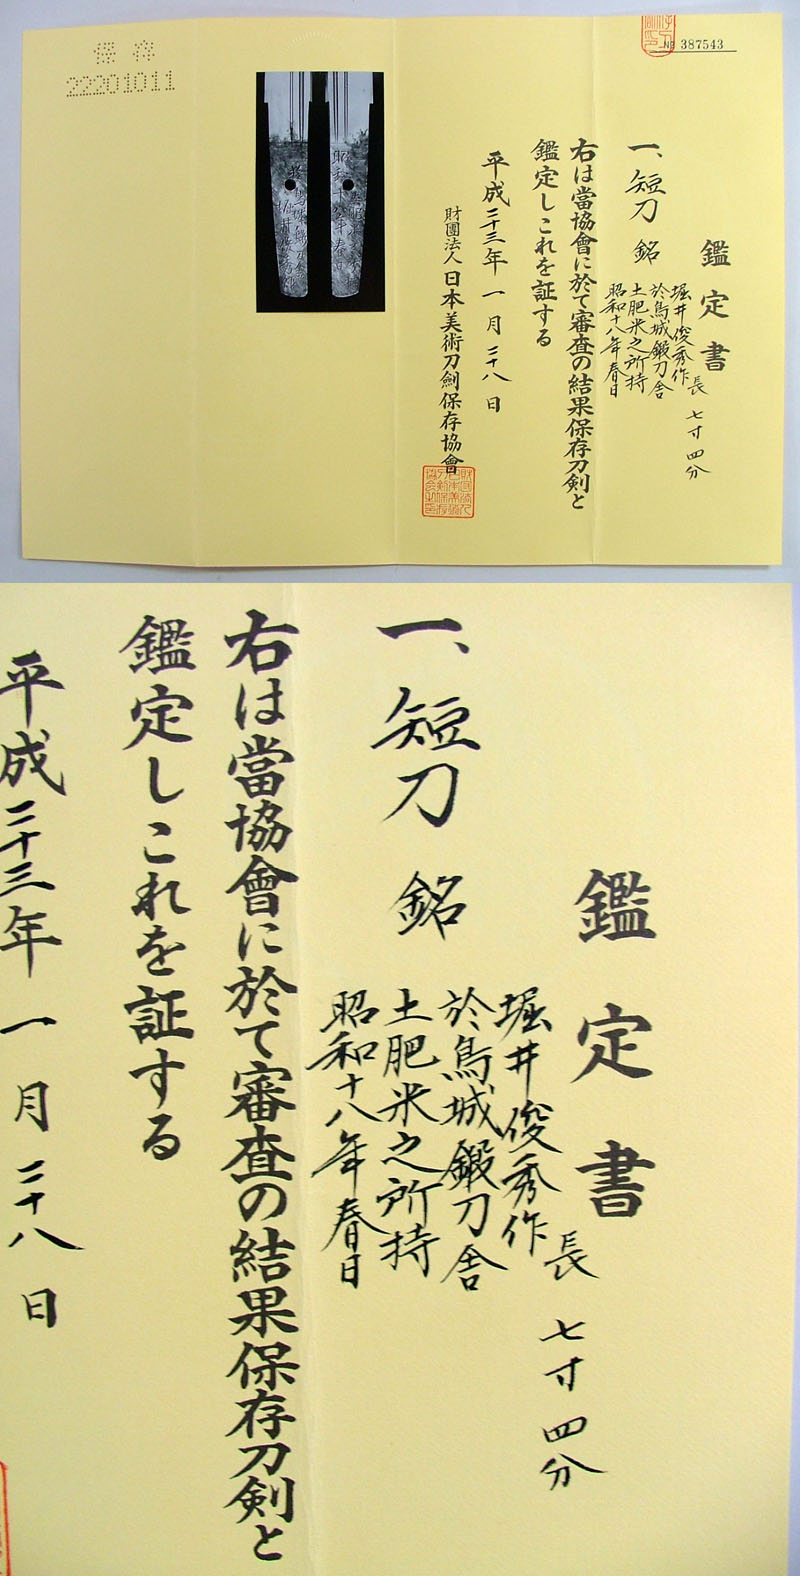 保存
22201011
No 387543
鑑定書
長 七寸四分
一、短刀 銘
堀井俊秀作
於烏城鍛刀舎
土肥米之所持
昭和十八年春日
右は當協會に於て審査の結果保存刀剣と
鑑定しこれを証する
平成二十三年 一月 二十八日
財團法人 日本美術刀劍保存協會
鑑定書
長 七寸四分
一、短刀 銘
堀井俊秀作
於烏城鍛刀舎
土肥米之所持
昭和十八年春日
右は當協會に於て審査の結果保存刀剣と
鑑定しこれを証する
平成二十三年 一月 二十八日